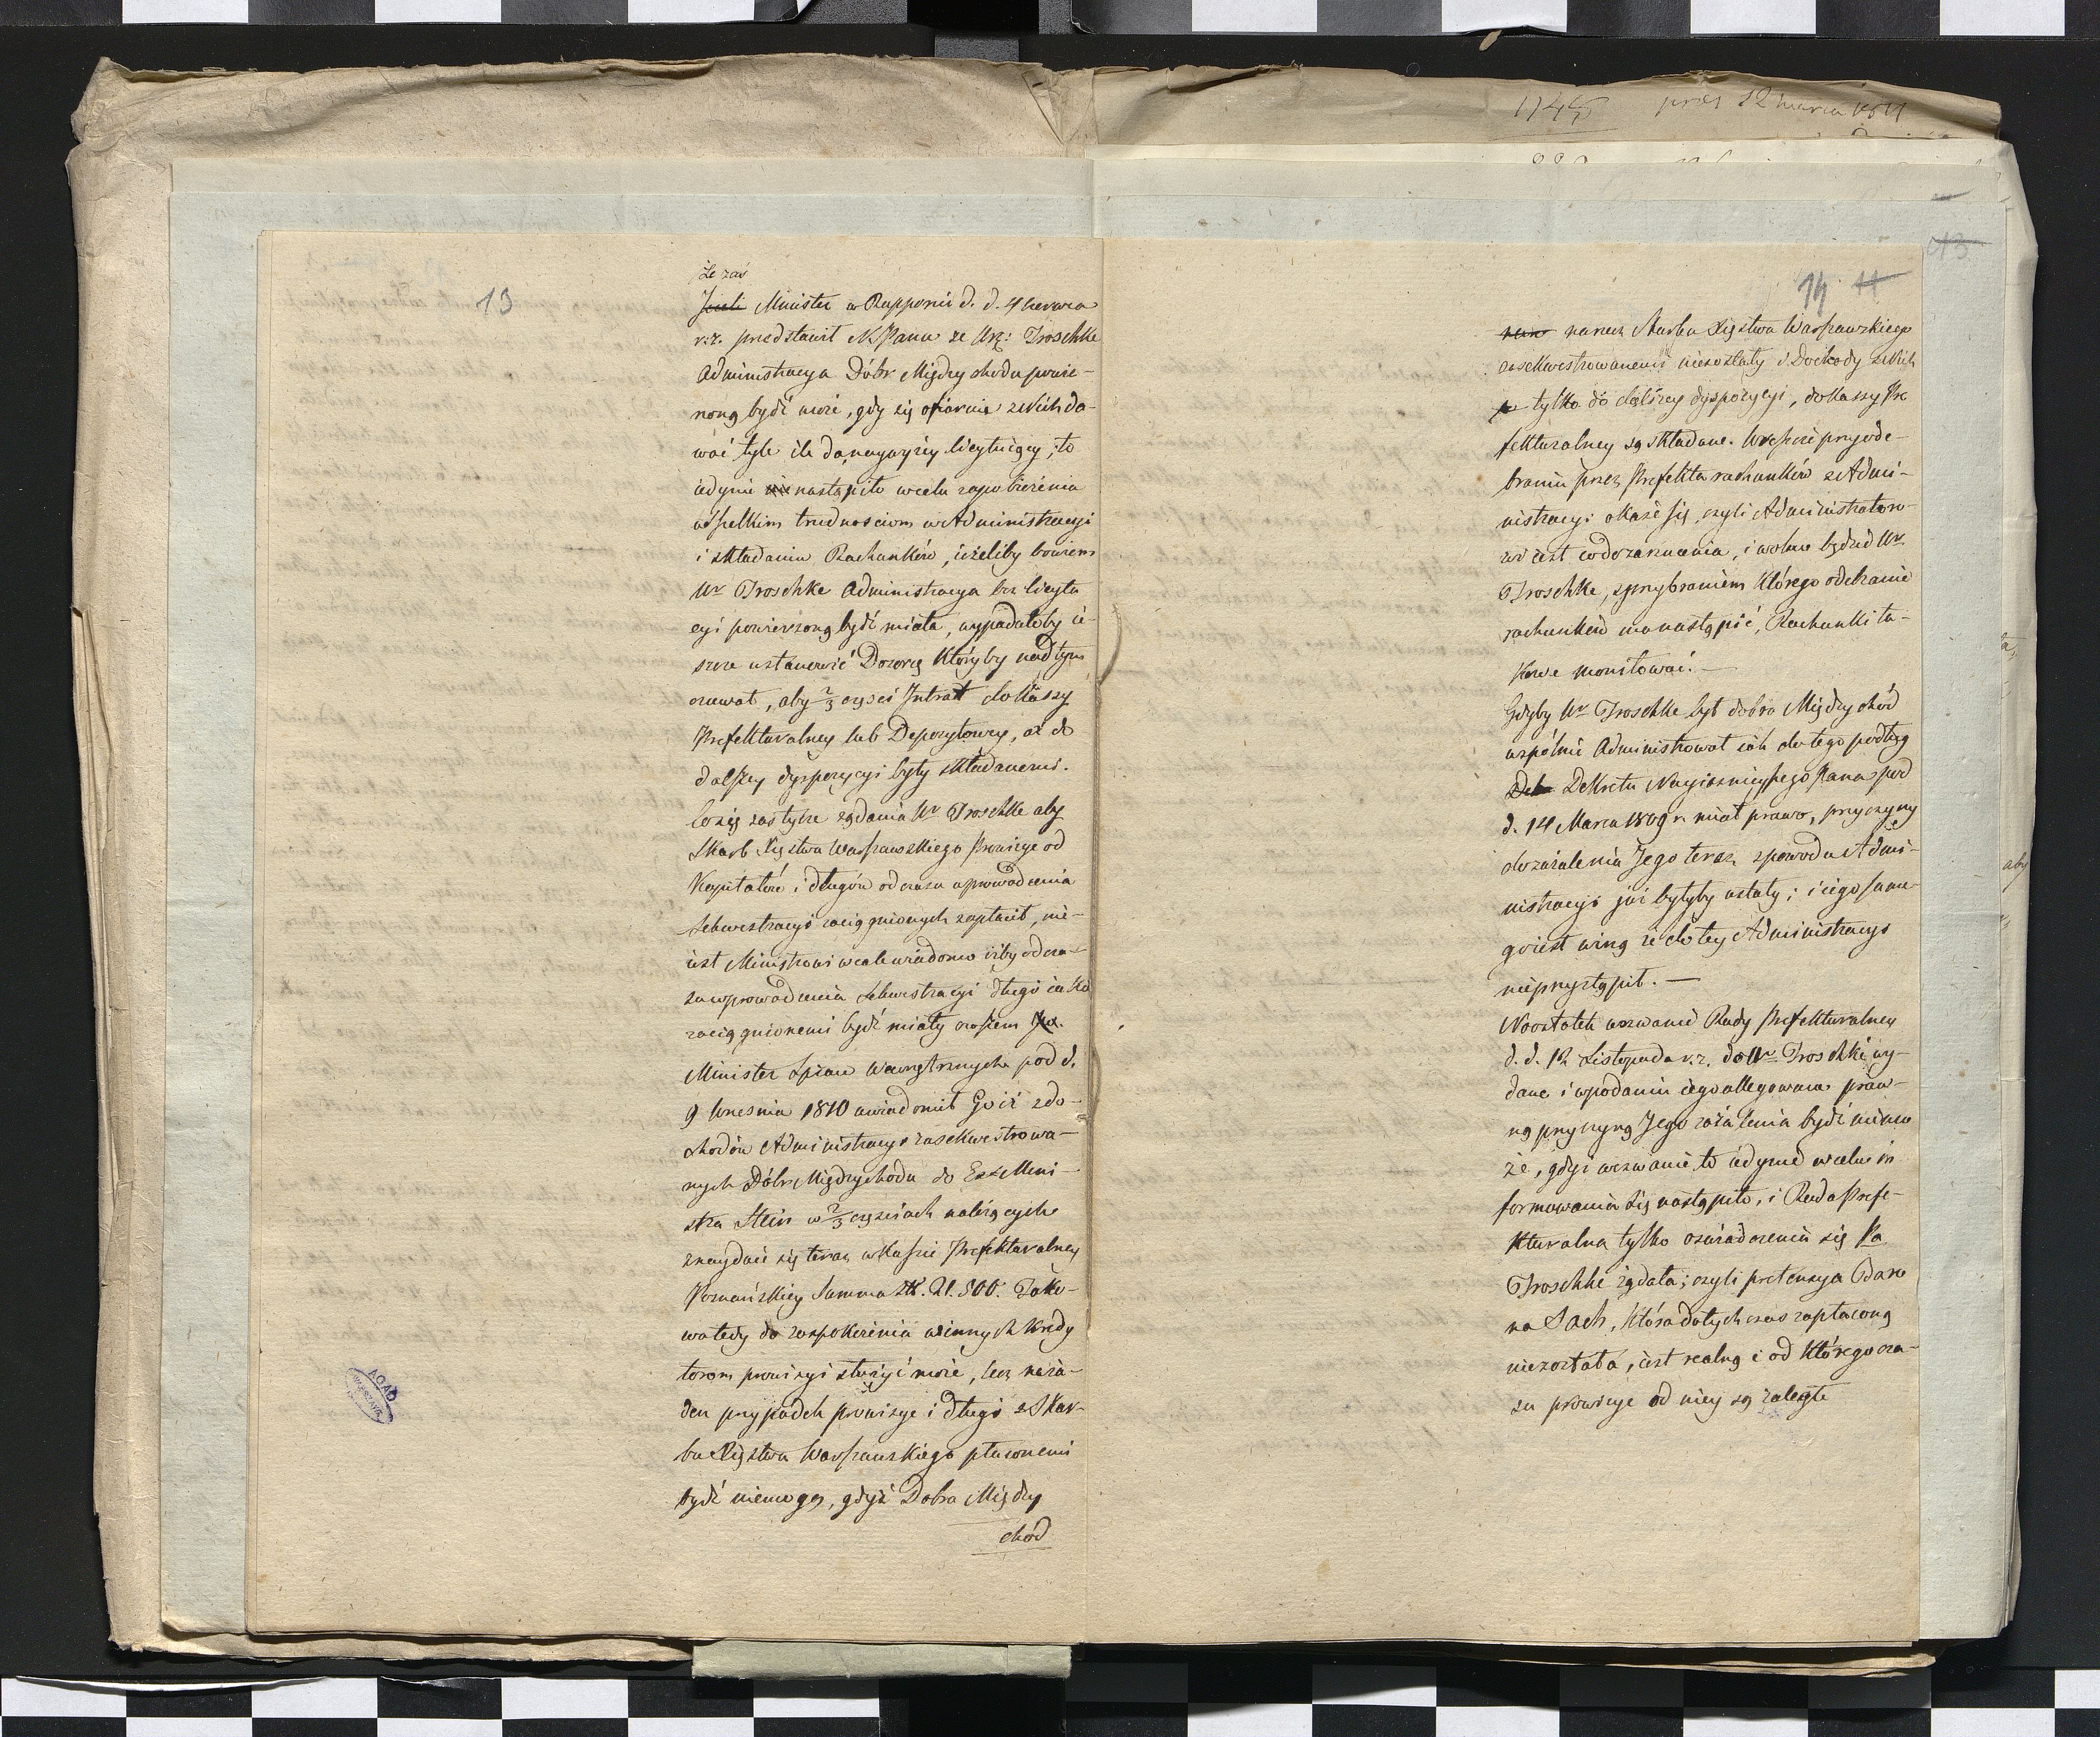 1145 prez 12 marca 1811
13
Że zaś
Jeżeli Minister w Rapporcie d. d. 4 Czerwca
r. z. przedstawił N. Panu że Ur: Troschke
Administracya Dóbr Międzychodu powie-
rzoną bydź może, gdy się ofiaruie z nich da-
wać tyle ile da naywyżey licytuiący, to
iedynie nastąpiło wcelu zapobieżenia
wszelkim trudnościom w Administracyi
i składaniu Rachunków, ieżeliby bowiem
Ur Troschke Administracya bez licyta
cyi powierzoną bydź miała, wypadałoby ie-
szcze ustanowić Dozorcę któryby nad tym
czuwał, aby 2/3 części Intrat do Kassy
Prefekturalney lub Depozytowey, aż do
dalszey dyspozycyi były składanemi.
Co się zaś tycze żądania Ur Troschke aby
Skarb Xięstwa Warszawskiego Prowizye od
Kapitałów i długów od czasu wprowadzenia
Sekwestracyi zaciągnionych zapłacił, nie-
iest Ministrowi wcale wiadomo iżby od cza-
su wprowadzenia Sekwestracyi długi iakie
zaciągnionemi bydź miały czasem
Minister Spraw Wewnętrznych pod d.
9 Września 1810 uwiadomił Go iż z do-
chodów Administracyi zasekwestrowa-
nych Dóbr Międzychodu do Ex Mini-
stra Stein w 2/3 częściach należących
znayduie się teraz w Kassie Prefekturalney
Poznańskiey Summa 21.800. Tako-
wa tedy do zaspokoienia winnych kredy
torom prowizyi służyć może, lecz na ża-
den przypadek prowizye i długi z Skar-
bu Xięstwa Warszawskiego płaconemi
bydź niemogą, gdyż Dobra Między
chód
14 11
013
na rzecz Skarbu Xięstwa Warszawskiego
zasekwestrowanemi niezostały i Dochody z nich
tylko do dalszey dyspozycyi, do Kassy Pre
fekturalney są składane. Wreszcie przy ode-
braniu przez Prefekta rachunków z Admi-
nistracyi okaże się, czyli Administratoro-
wi iest co do zarzucenia, i wolno będzie Ur
Troschke, z przybraniem którego odebranie
rachunków ma nastąpić, Rachunki ta-
kowe monitować. —
Gdyby Ur Troschke był dobra Międzychód
wspólnie Administrował iak do tego podług
Dekretu Nayiaśnieyszego Pana pod
d. 14 Marca 1809 r. miał prawo, przyczyny
do zażalenia Jego teraz z powodu Admi-
nistracyi już byłyby ustały; i iego same-
go iest winą że do tey Administracyi
nieprzystąpił. —
Naostatek wezwanie Rady Prefekturalney
d. d. 12 Listopada r. z. do Ur Troschke wy-
dane i w podaniu iego allegowane praw-
ną przyczyną Jego zażalenia bydź niemo
że, gdyż wezwanie to iedynie wcelu in
formowania się nastąpiło, i Rada Prefe-
kturalna tylko oświadczenia się Pa
Troschke żądała; czyli pretensya Baro
na Sach, która dotychczas zapłaconą
niezostała, iest realną i od którego cza-
su prowizye od niey są zaległe
aby
AGAD